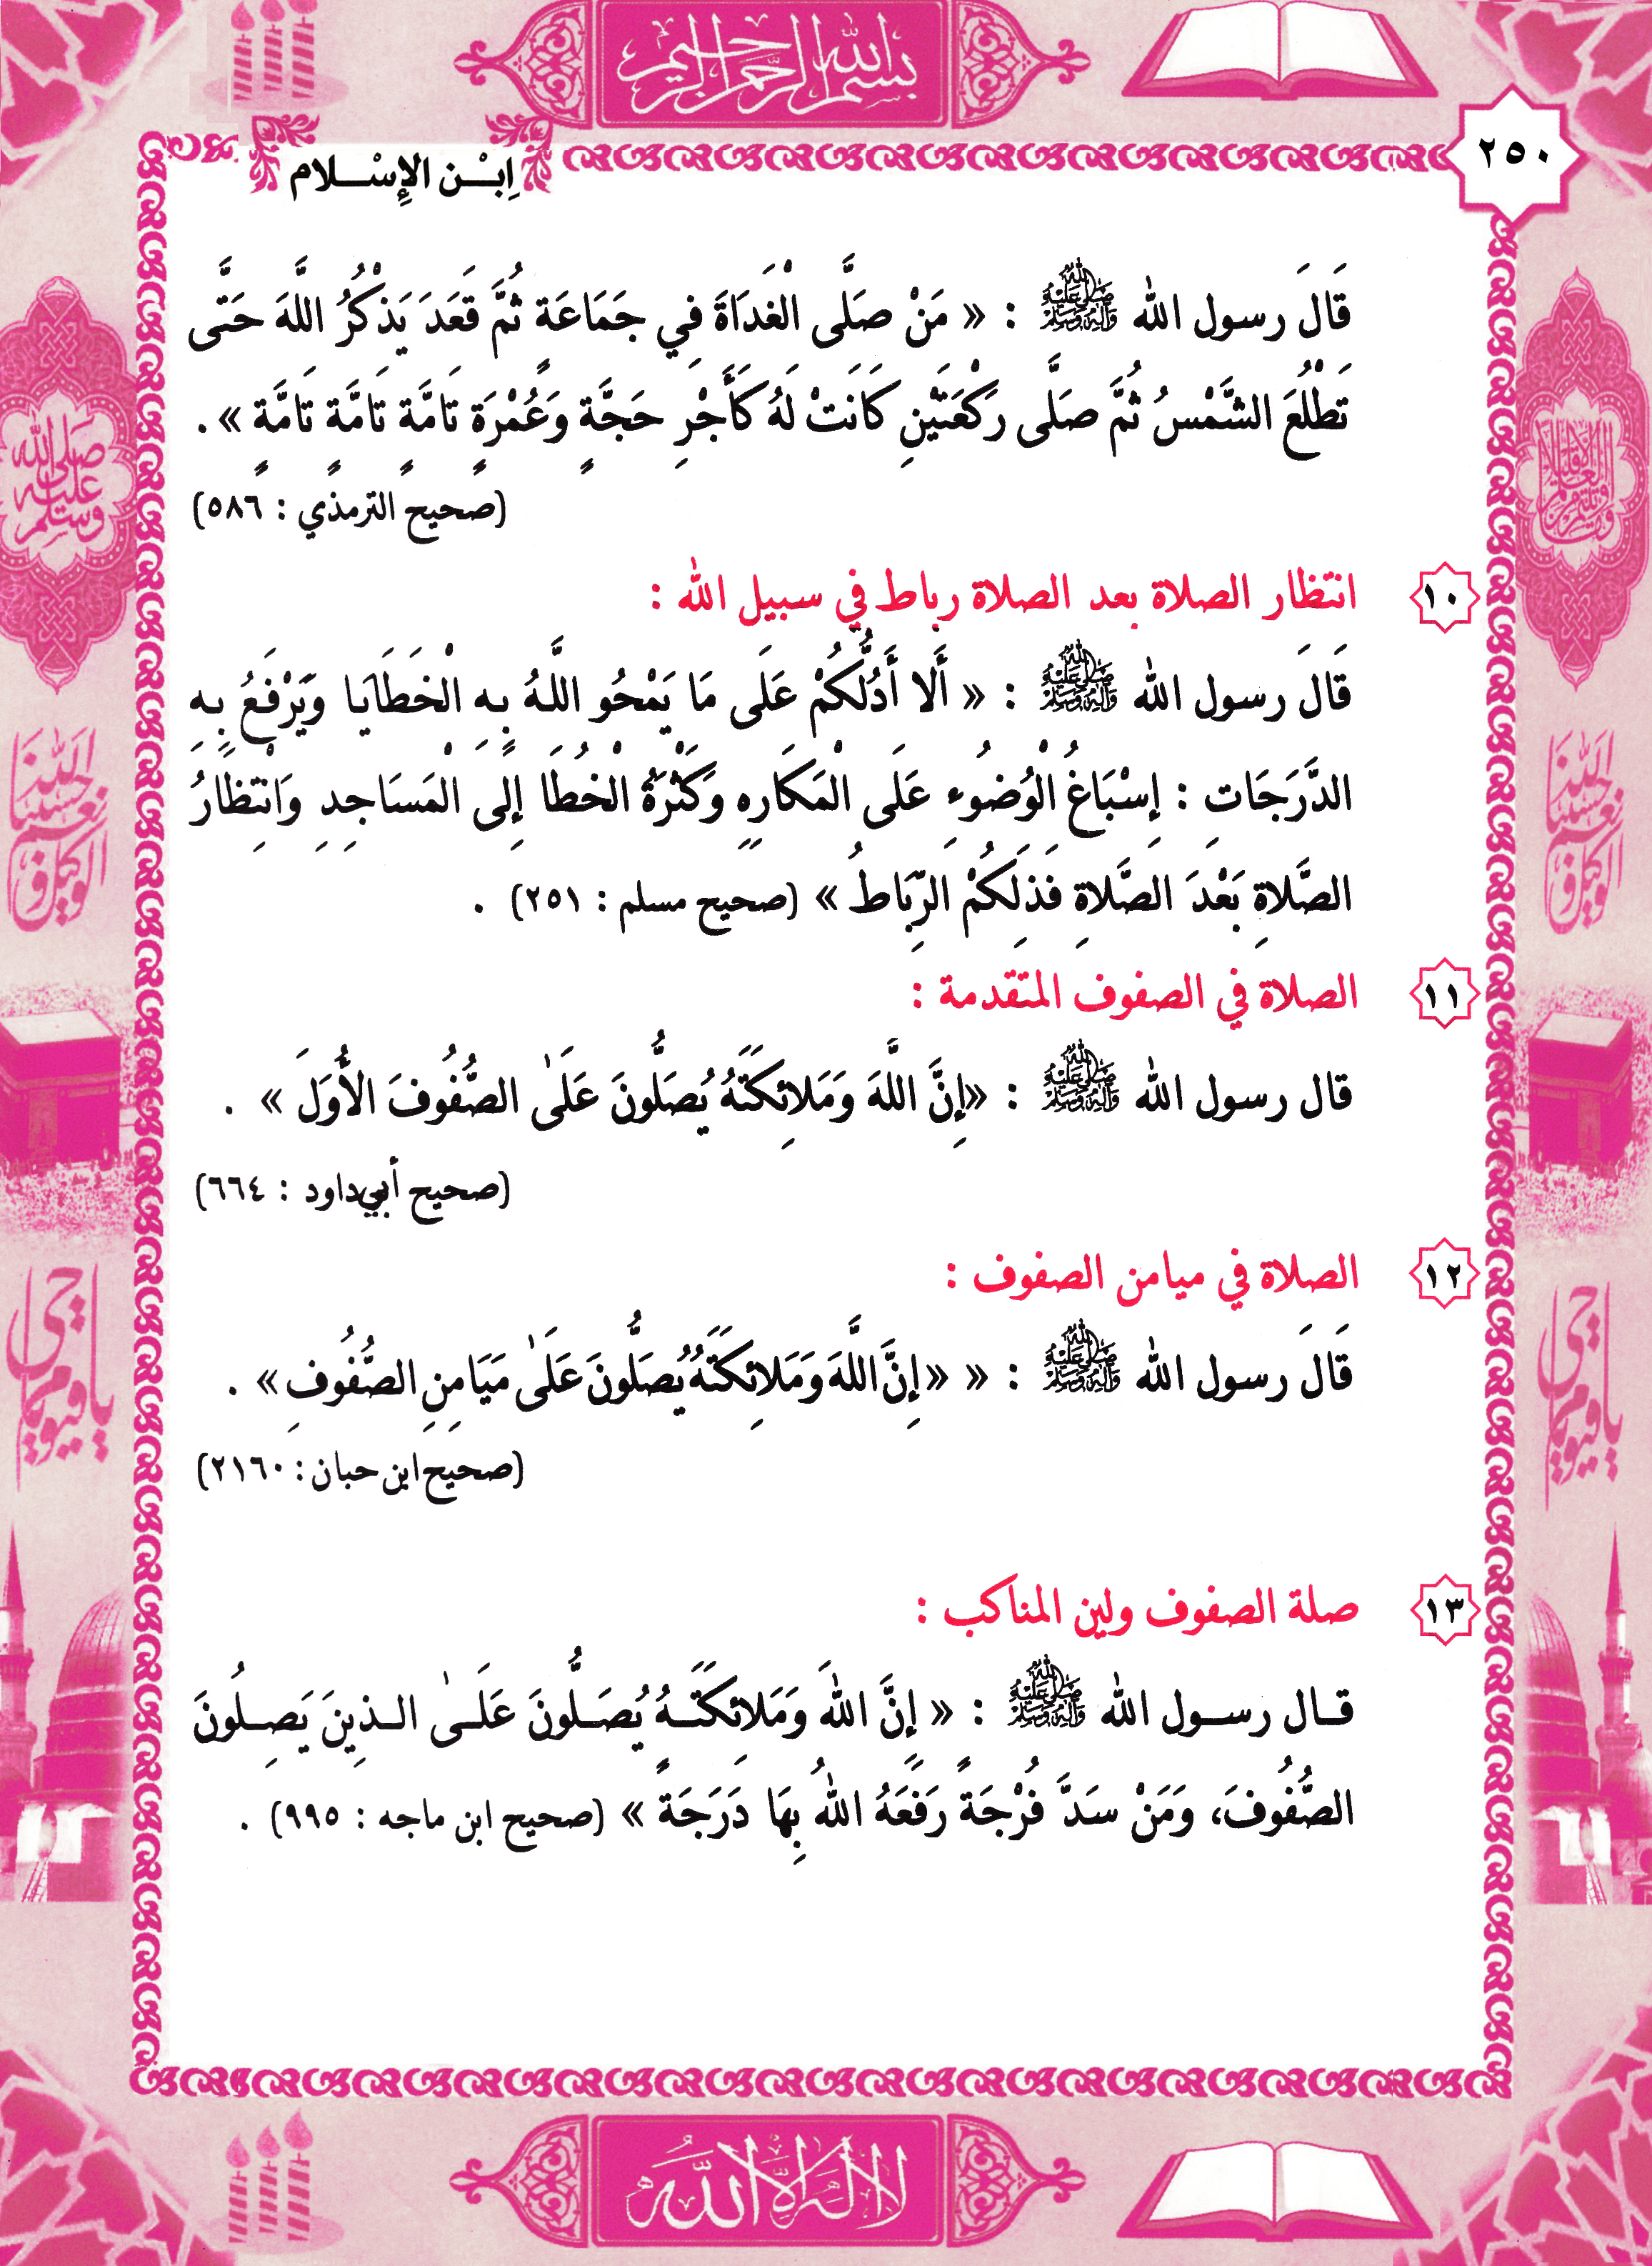 بسم الله الرحمن الرحيم
٢٥٠
اِبْـن الإِسْـلام
قَالَ رسول الله ﷺ : « مَنْ صَلَّى الْغَدَاةَ فِي جَمَاعَةٍ ثُمَّ قَعَدَ يَذْكُرُ اللَّهَ حَتَّى
تَطْلُعَ الشَّمْسُ ثُمَّ صَلَّى رَكْعَتَيْنِ كَانَتْ لَهُ كَأَجْرِ حَجَّةٍ وَعُمْرَةٍ تَامَّةٍ تَامَّةٍ تَامَّةٍ » .
(صحيح الترمذي : ٥٨٦)
١٠ انتظار الصلاة بعد الصلاة رباط في سبيل الله :
قَالَ رسول الله ﷺ : « أَلَا أَدُلُّكُمْ عَلَى مَا يَمْحُو اللَّهُ بِهِ الْخَطَايَا وَيَرْفَعُ بِهِ
الدَّرَجَاتِ : إِسْبَاغُ الْوُضُوءِ عَلَى الْمَكَارِهِ وَكَثْرَةُ الْخُطَا إِلَى الْمَسَاجِدِ وَانْتِظَارُ
الصَّلَاةِ بَعْدَ الصَّلَاةِ فَذَلِكُمْ الرِّبَاطُ » (صحيح مسلم : ٢٥١) .
١١ الصلاة في الصفوف المتقدمة :
قال رسول الله ﷺ : «إِنَّ اللَّهَ وَمَلائِكَتَهُ يُصَلُّونَ عَلَىٰ الصُّفُوفَ الأُوَلَ » .
(صحيح أبي داود : ٦٦٤)
١٢ الصلاة في ميامن الصفوف :
قَالَ رسول الله ﷺ : « «إِنَّ اللَّهَ وَمَلائِكَتَهُ يُصَلُّونَ عَلَىٰ مَيَامِنِ الصُّفُوفِ» .
(صحيح ابن حبان : ٢١٦٠)
١٣ صلة الصفوف ولين المناكب :
قـال رسـول الله ﷺ : « إِنَّ اللهَ وَمَلائِكَتَـهُ يُصَـلُّونَ عَلَـىٰ الـذِينَ يَصِـلُونَ
الصُّفُوفَ، وَمَنْ سَدَّ فُرْجَةً رَفَعَهُ اللهُ بِهَا دَرَجَةً » (صحيح ابن ماجه : ٩٩٥) .
صلى الله عليه وسلم
حسبنا الله ونعم الوكيل
يا حي يا قيوم
لا إله إلا الله